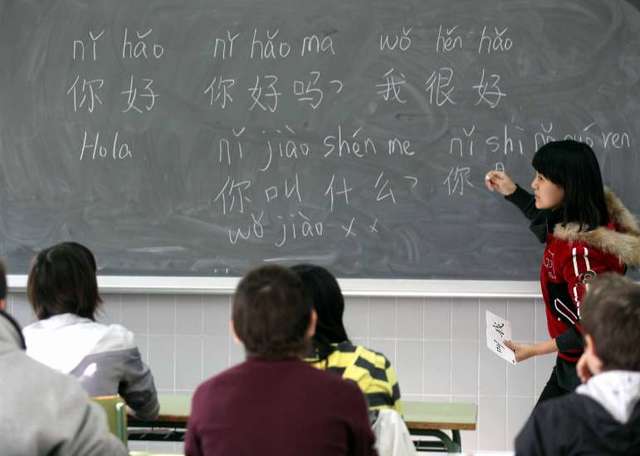 nǐ hǎo nǐ hǎo ma wǒ hěn hǎo
你好 你好吗? 我很好
Hola nǐ jiào shén me nǐ shì guó ren
你叫什么? 你
wǒ jiào x x